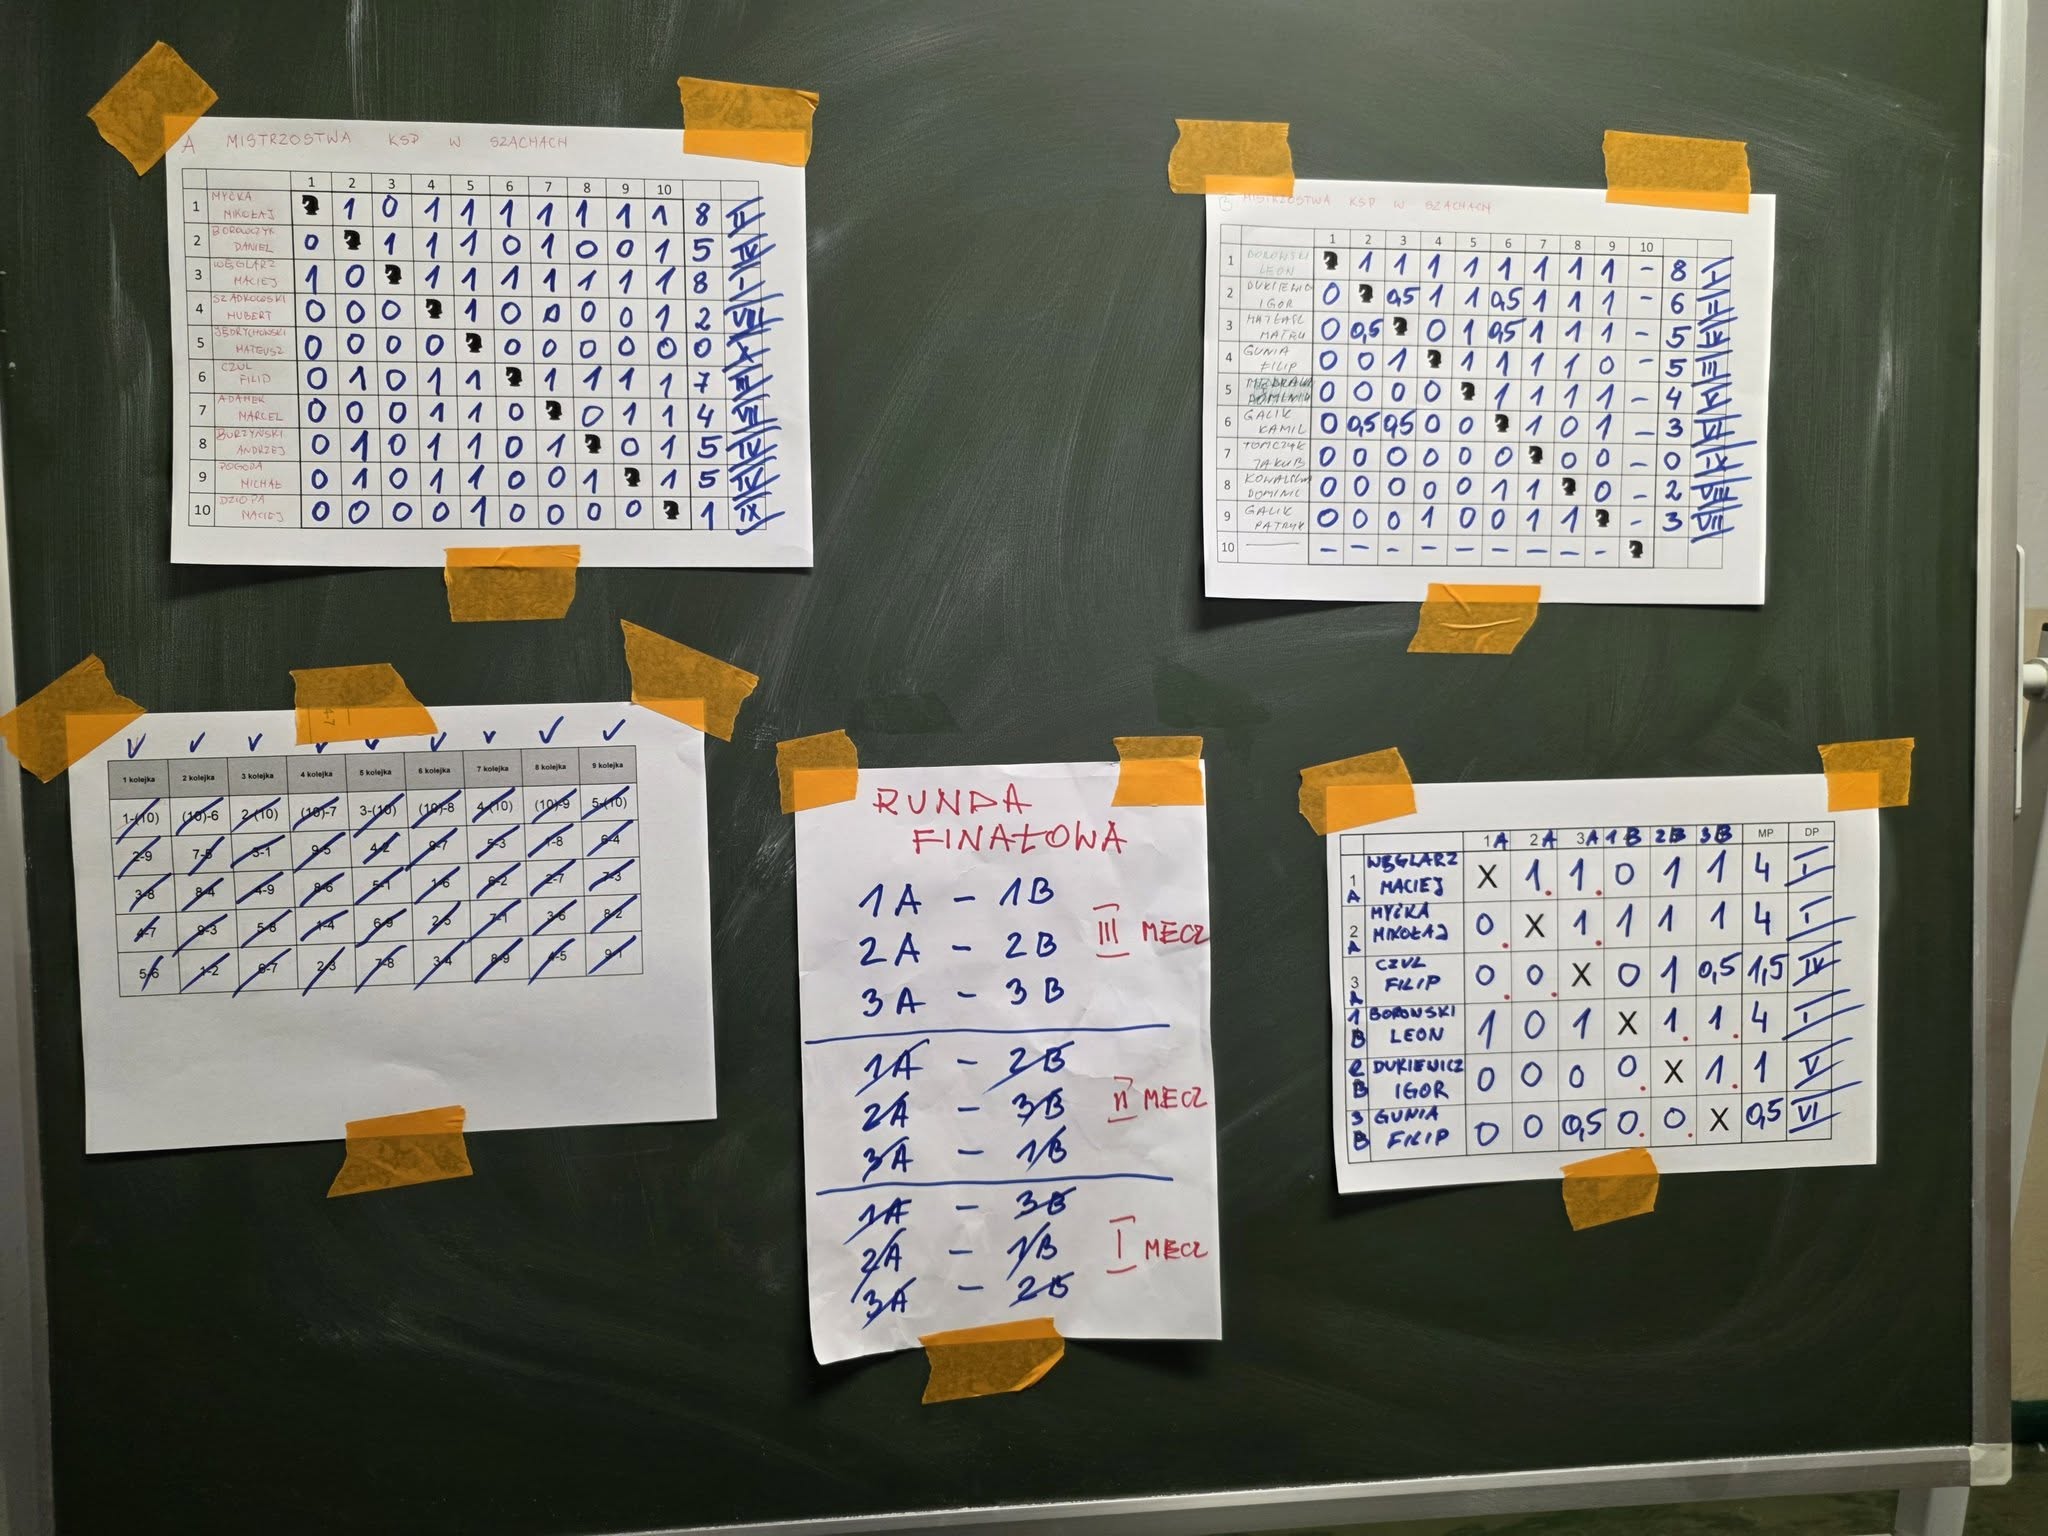 A MISTRZOSTWA KSP W SZACHACH
1 2 3 4 5 6 7 8 9 10
1 MYĆKA MIKOŁAJ 1 0 1 1 1 1 1 1 1 8 II
2 BOROWCZYK DANIEL 0 1 1 1 0 1 0 0 1 5
3 WĘGLARZ MACIEJ 1 0 1 1 1 1 1 1 1 8 I
4 SZADKOWSKI HUBERT 0 0 0 1 0 0 0 0 1 2 VIII
5 JĘDRYCHOWSKI MATEUSZ 0 0 0 0 0 0 0 0 0 0 X
6 CZUL FILIP 0 1 0 1 1 1 1 1 1 7 III
7 ADAMEK MARCEL 0 0 0 1 1 0 0 1 1 4 VII
8 BURZYŃSKI ANDRZEJ 0 1 0 1 1 0 1 0 1 5
9 POGODA MICHAŁ 0 1 0 1 1 0 0 1 1 5
10 DZIOPA MACIEJ 0 0 0 0 1 0 0 0 0 1 IX
B MISTRZOSTWA KSP W SZACHACH
1 2 3 4 5 6 7 8 9 10
1 BOROWSKI LEON 1 1 1 1 1 1 1 1 - 8 I
2 DUKIEWICZ IGOR 0 0,5 1 1 0,5 1 1 1 - 6 II
3 0 0,5 0 1 0,5 1 1 1 - 5 IV
4 GUNIA FILIP 0 0 1 1 1 1 1 0 - 5 III
5 0 0 0 0 1 1 1 1 - 4 V
6 GALIK KAMIL 0 0,5 0,5 0 0 1 0 1 - 3 VI
7 TOMCZYK JAKUB 0 0 0 0 0 0 0 0 - 0 IX
8 DOMINIC 0 0 0 0 0 1 1 0 - 2 VIII
9 GALIK PATRYK 0 0 0 1 0 0 1 1 - 3 VII
10 — - - - - - - - - -
4-7
1 kolejka 2 kolejka 3 kolejka 4 kolejka 5 kolejka 6 kolejka 7 kolejka 8 kolejka 9 kolejka
1-(10) (10)-6 2-(10) (10)-7 3-(10) (10)-8 4-(10) (10)-9 5-(10)
2-9 7-5 3-1 9-5 4-2 9-7 5-3 1-8 6-4
3-8 8-4 4-9 8-6 5-1 1-6 6-2 2-7 7-3
4-7 9-3 5-8 1-4 6-9 2-5 7-1 3-6 8-2
5-6 1-2 6-7 2-3 7-8 3-4 8-9 4-5 9-1
RUNDA
FINAŁOWA
1A - 1B
2A - 2B III MECZ
3A - 3B
1A - 2B
2A - 3B II MECZ
3A - 1B
1A - 3B
2A - 1B I MECZ
3A - 2B
1A 2A 3A 1B 2B 3B MP DP
1A WĘGLARZ MACIEJ X 1. 1. 0 1 1 4 I
2A MYĆKA MIKOŁAJ 0. X 1. 1 1 1 4 I
3A CZUL FILIP 0. 0. X 0 1 0,5 1,5 IV
1B BOROWSKI LEON 1 0 1 X 1. 1. 4 I
2B DUKIEWICZ IGOR 0 0 0 0. X 1. 1 V
3B GUNIA FILIP 0 0 0,5 0. 0. X 0,5 VI